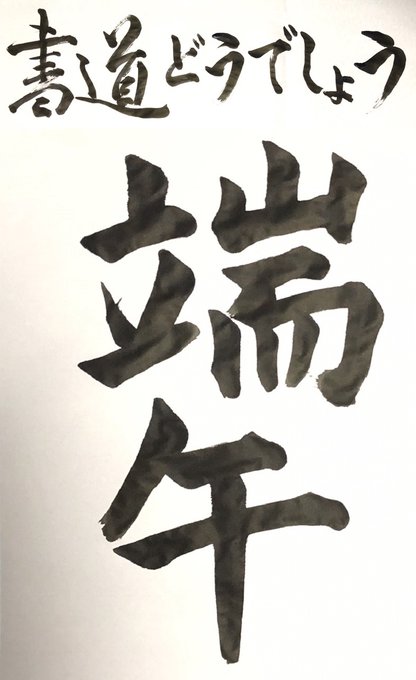 書道どうでしょう
端午